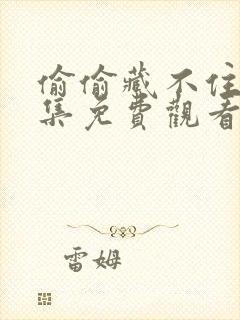 偷偷藏不住
集免費觀看
雷姆